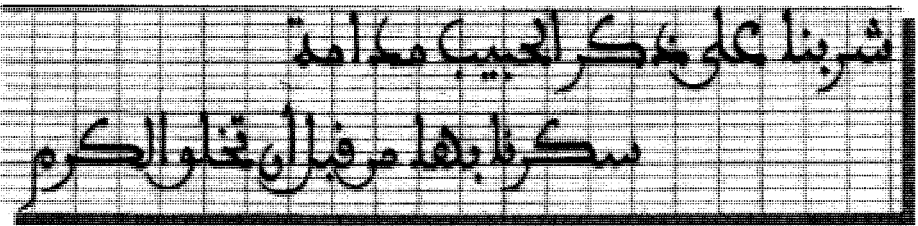 شربنا على ذكر الحبيب مدامة
سكرنا بها من قبل أن يخلق الكرم